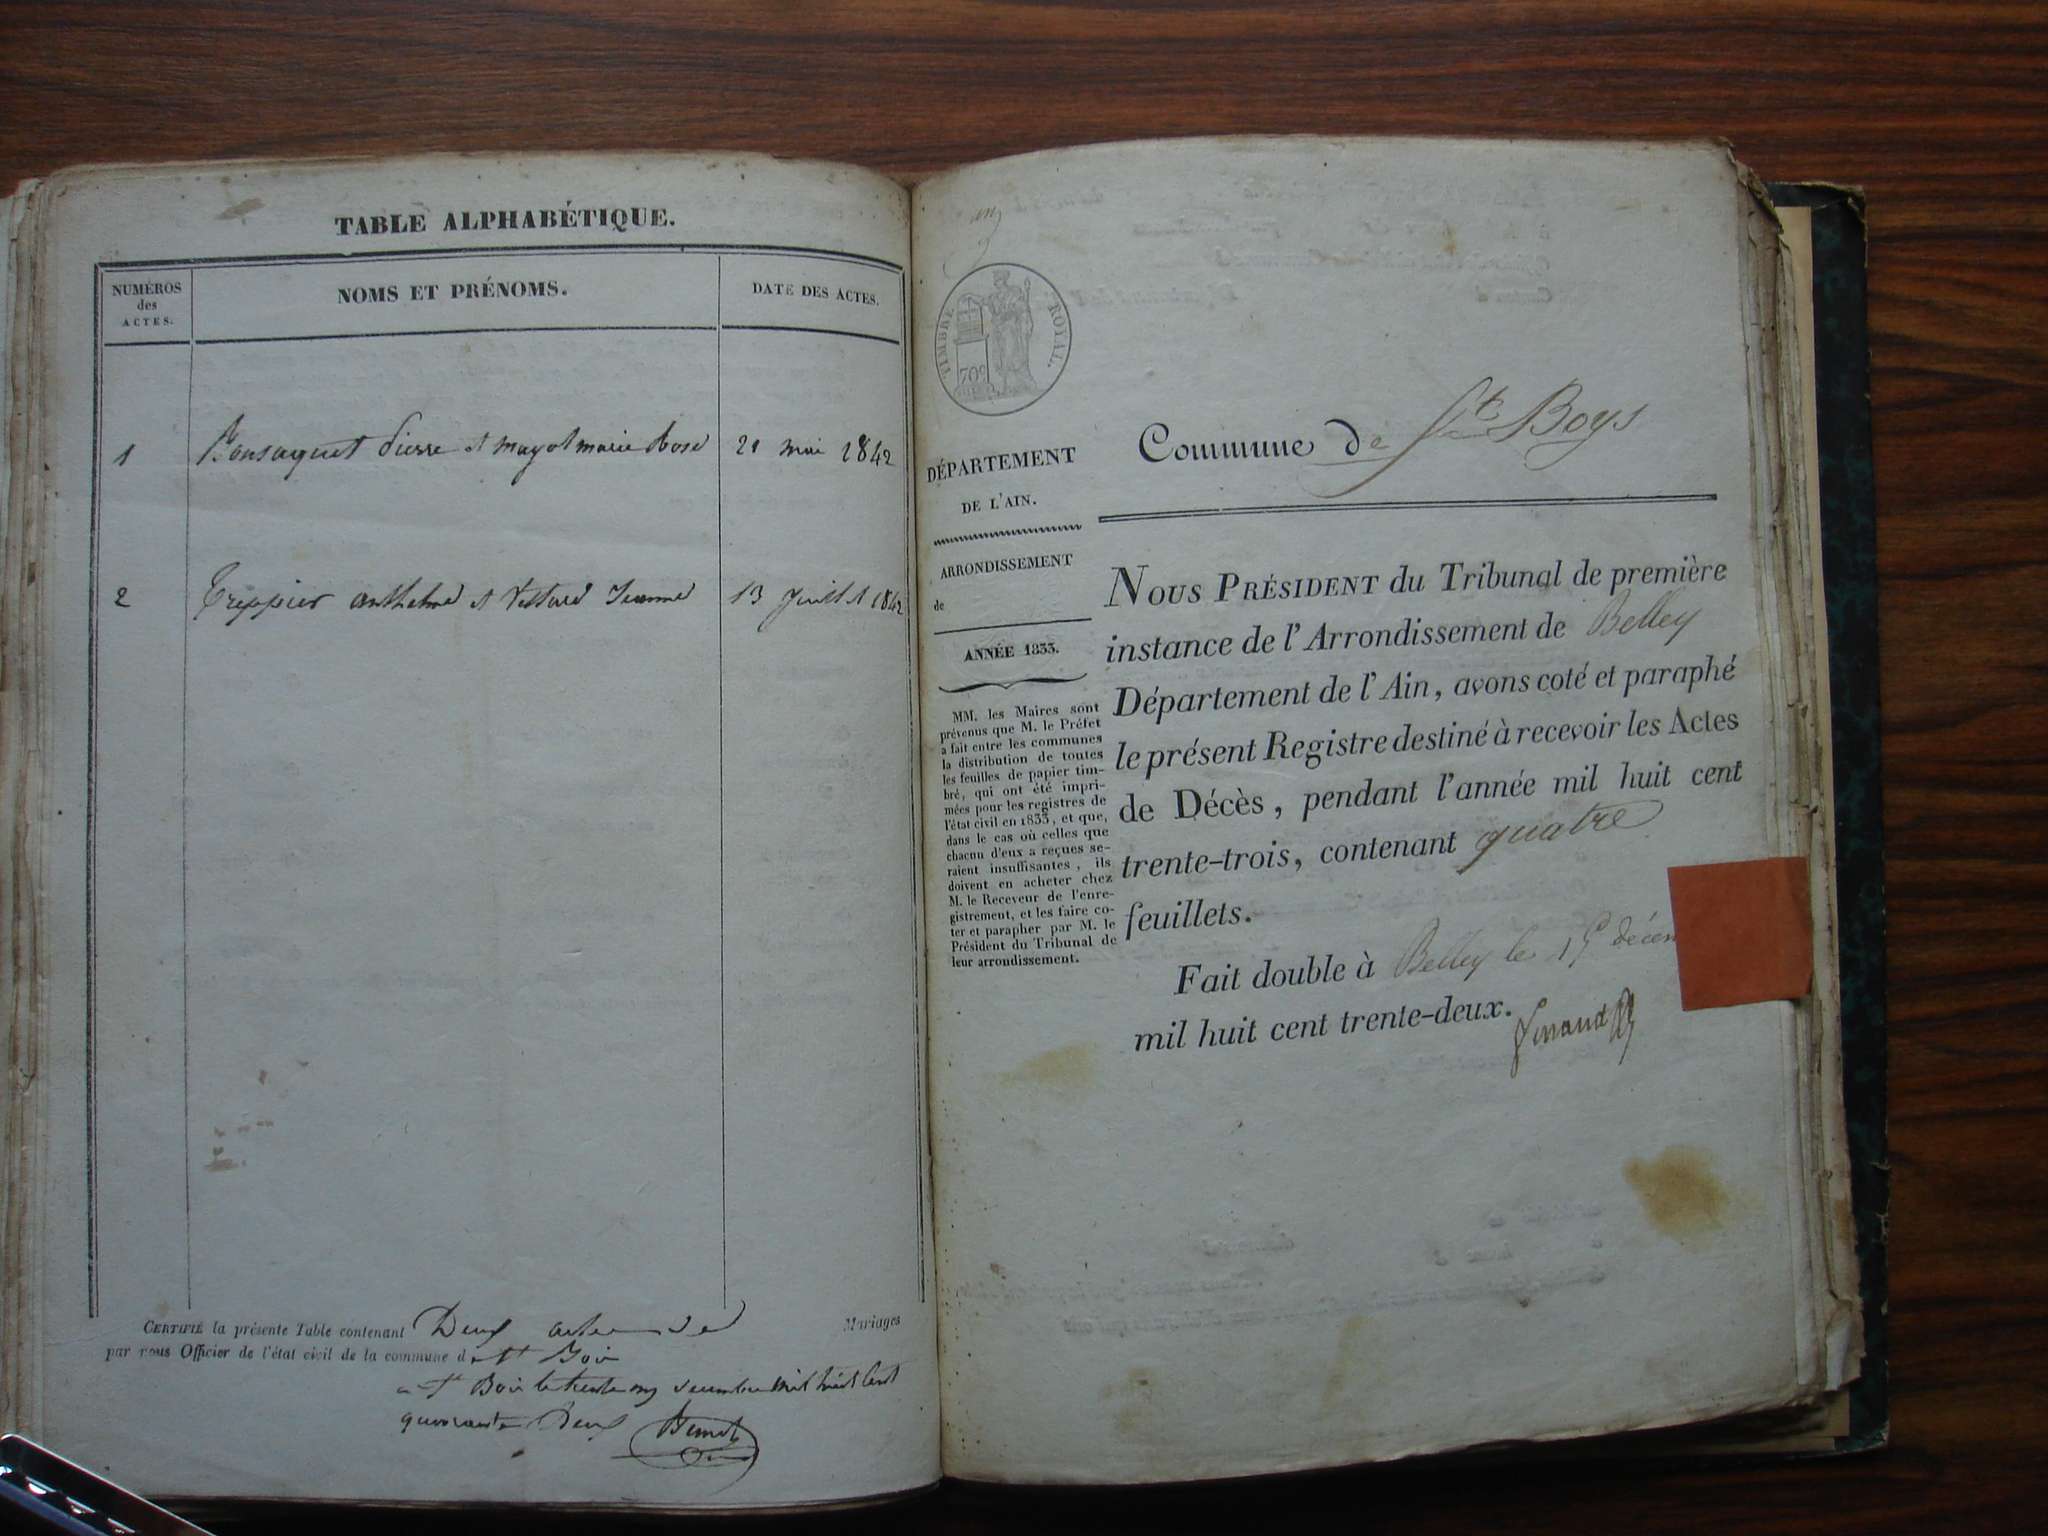 TABLE ALPHABÉTIQUE.
NUMÉROS
des
ACTES.
NOMS ET PRÉNOMS.
DATE DES ACTES.
1 Bonsaquet Pierre et mayol marie Rose 21 mai 1842
2 Treppier anthelme et Jeanne 13 Juillet 1842
CERTIFIÉ la présente Table contenant Deux actes de Mariages
par nous Officier de l'état civil de la commune d e St Boir
a St Boir le trente un decembre mil huit Cent
quarante Deux Benoit
TIMBRE ROYAL.
70c
DÉPARTEMENT
DE L'AIN.
ARRONDISSEMENT
de
ANNÉE 1833.
MM. les Maires sont
prévenus que M. le Préfet
a fait entre les communes
la distribution de toutes
les feuilles de papier tim-
bré, qui ont été impri-
mées pour les registres de
l'état civil en 1833, et que,
dans le cas où celles que
chacun d'eux a reçues se-
raient insuffisantes, ils
doivent en acheter chez
M. le Receveur de l'enre-
gistrement, et les faire co-
ter et parapher par M. le
Président du Tribunal de
leur arrondissement.
Commune de St Boys
NOUS PRÉSIDENT du Tribunal de première
instance de l'Arrondissement de Belley
Département de l'Ain, avons coté et paraphé
le présent Registre destiné à recevoir les Actes
de Décès, pendant l'année mil huit cent
trente-trois, contenant quatre
feuillets.
Fait double à Belley le 15 décem
mil huit cent trente-deux.